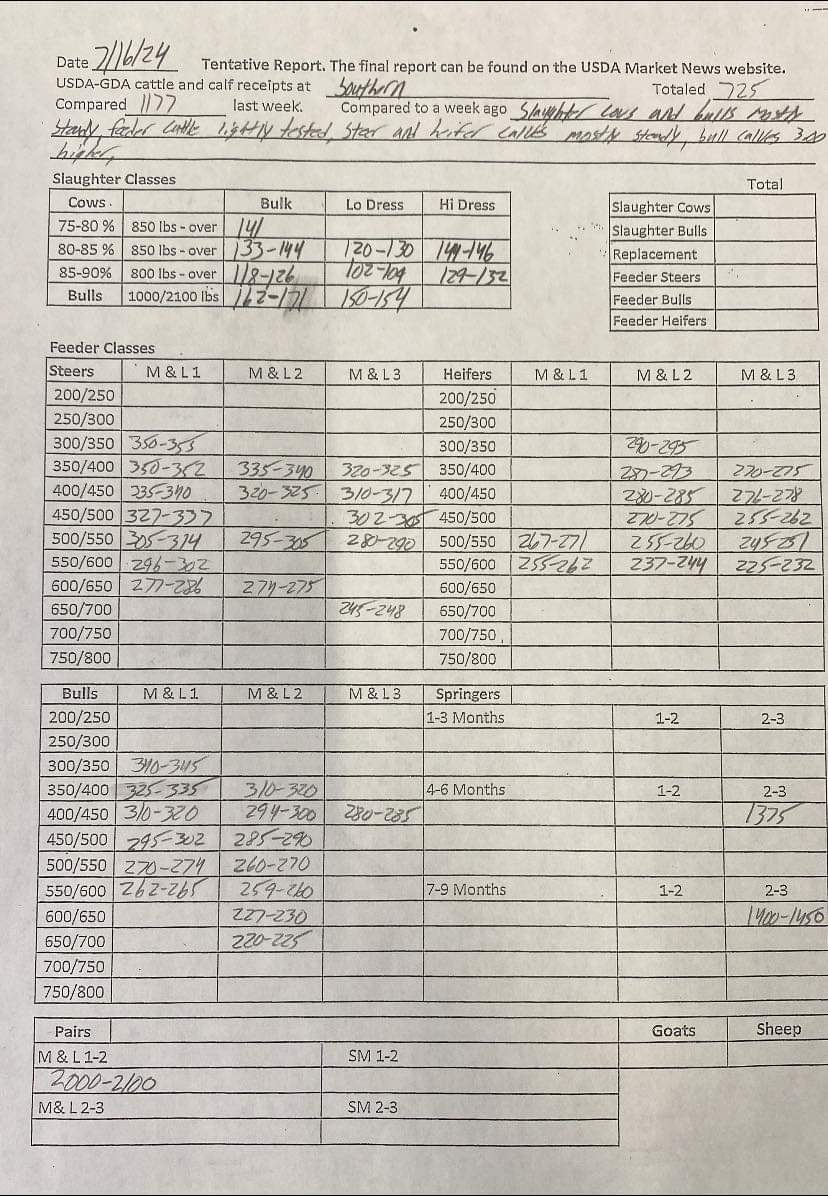 Date 7/16/24 Tentative Report. The final report can be found on the USDA Market News website.
USDA-GDA cattle and calf receipts at Southern Totaled 725
Compared 1177 last week. Compared to a week ago Slaughter cows and bulls mostly
steady, feeder cattle lightly tested, steer and heifer calves mostly steady, bull calves 3.00
higher,
Slaughter Classes
Total
Cows Bulk Lo Dress Hi Dress
Slaughter Cows
75-80 % 850 lbs - over 141
Slaughter Bulls
80-85 % 850 lbs - over 133-144 120-130 144-146
Replacement
85-90% 800 lbs - over 118-126 102-109 129-132
Feeder Steers
Bulls 1000/2100 lbs 162-171 150-154
Feeder Bulls
Feeder Heifers
Feeder Classes
Steers M & L 1 M & L 2 M & L 3 Heifers M & L 1 M & L 2 M & L 3
200/250 200/250
250/300 250/300
300/350 350-355 300/350 290-295
350/400 350-352 335-340 320-325 350/400 287-293 270-275
400/450 235-340 320-325 310-317 400/450 280-285 276-278
450/500 327-337 302-305 450/500 270-275 255-262
500/550 305-314 295-305 280-290 500/550 267-271 255-260 245-251
550/600 296-302 550/600 255-262 237-244 225-232
600/650 277-286 274-275 600/650
650/700 245-248 650/700
700/750 700/750
750/800 750/800
Bulls M & L 1 M & L 2 M & L 3 Springers
200/250 1-3 Months 1-2 2-3
250/300
300/350 340-345
350/400 325-335 310-320 4-6 Months 1-2 2-3
400/450 310-320 294-300 280-285 1375
450/500 295-302 285-290
500/550 270-274 260-270
550/600 262-265 259-260 7-9 Months 1-2 2-3
600/650 227-230 1400-1450
650/700 220-225
700/750
750/800
Pairs Goats Sheep
M & L 1-2 SM 1-2
2000-2100
M& L 2-3 SM 2-3